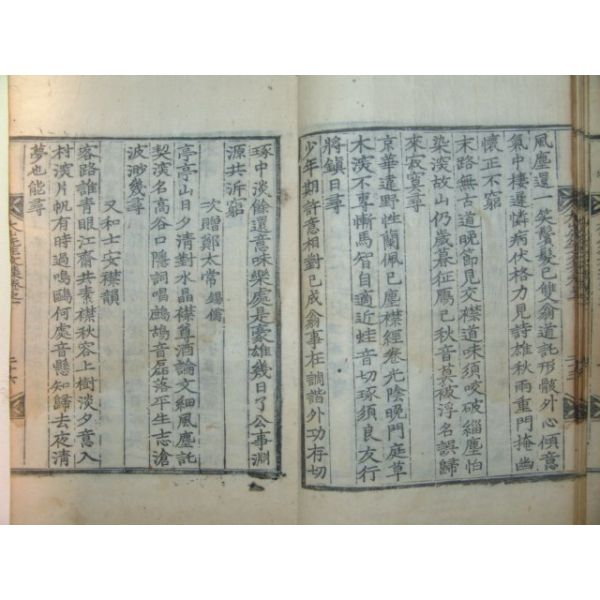 風塵還一笑鬢髮已雙翁道託形骸外心傾意
氣中棲遲憐病伏格力見詩雄秋雨重門掩幽
懷正不窮
末路無古道晚節見交襟道味須咬破緇塵怕
染淡故山仍歲暮征鴈已秋音莫被浮名誤歸
來寂寞尋
京華違野性蘭佩已塵襟經卷光陰晚門庭草
木淡不專慚馬智自適近蛙音切琢須良友行
將鎮日尋
少年期許意相對已成翁事在調諧外功存切
琢中淡餘還意味樂處是豪雄幾日了公事淵
源共泝窮
次贈鄭太常錫儒
亭亭山日夕清對水晶襟尊酒論文細風塵託
契淡名高谷口隱詞唱鷓鴣音磊落平生志滄
波渺幾尋
又和士安襟韻
客路誰青眼江齋共素襟秋容上樹淡夕意入
村淡片帆有時過鳴鷗何處音懸知歸去夜清
夢也能尋